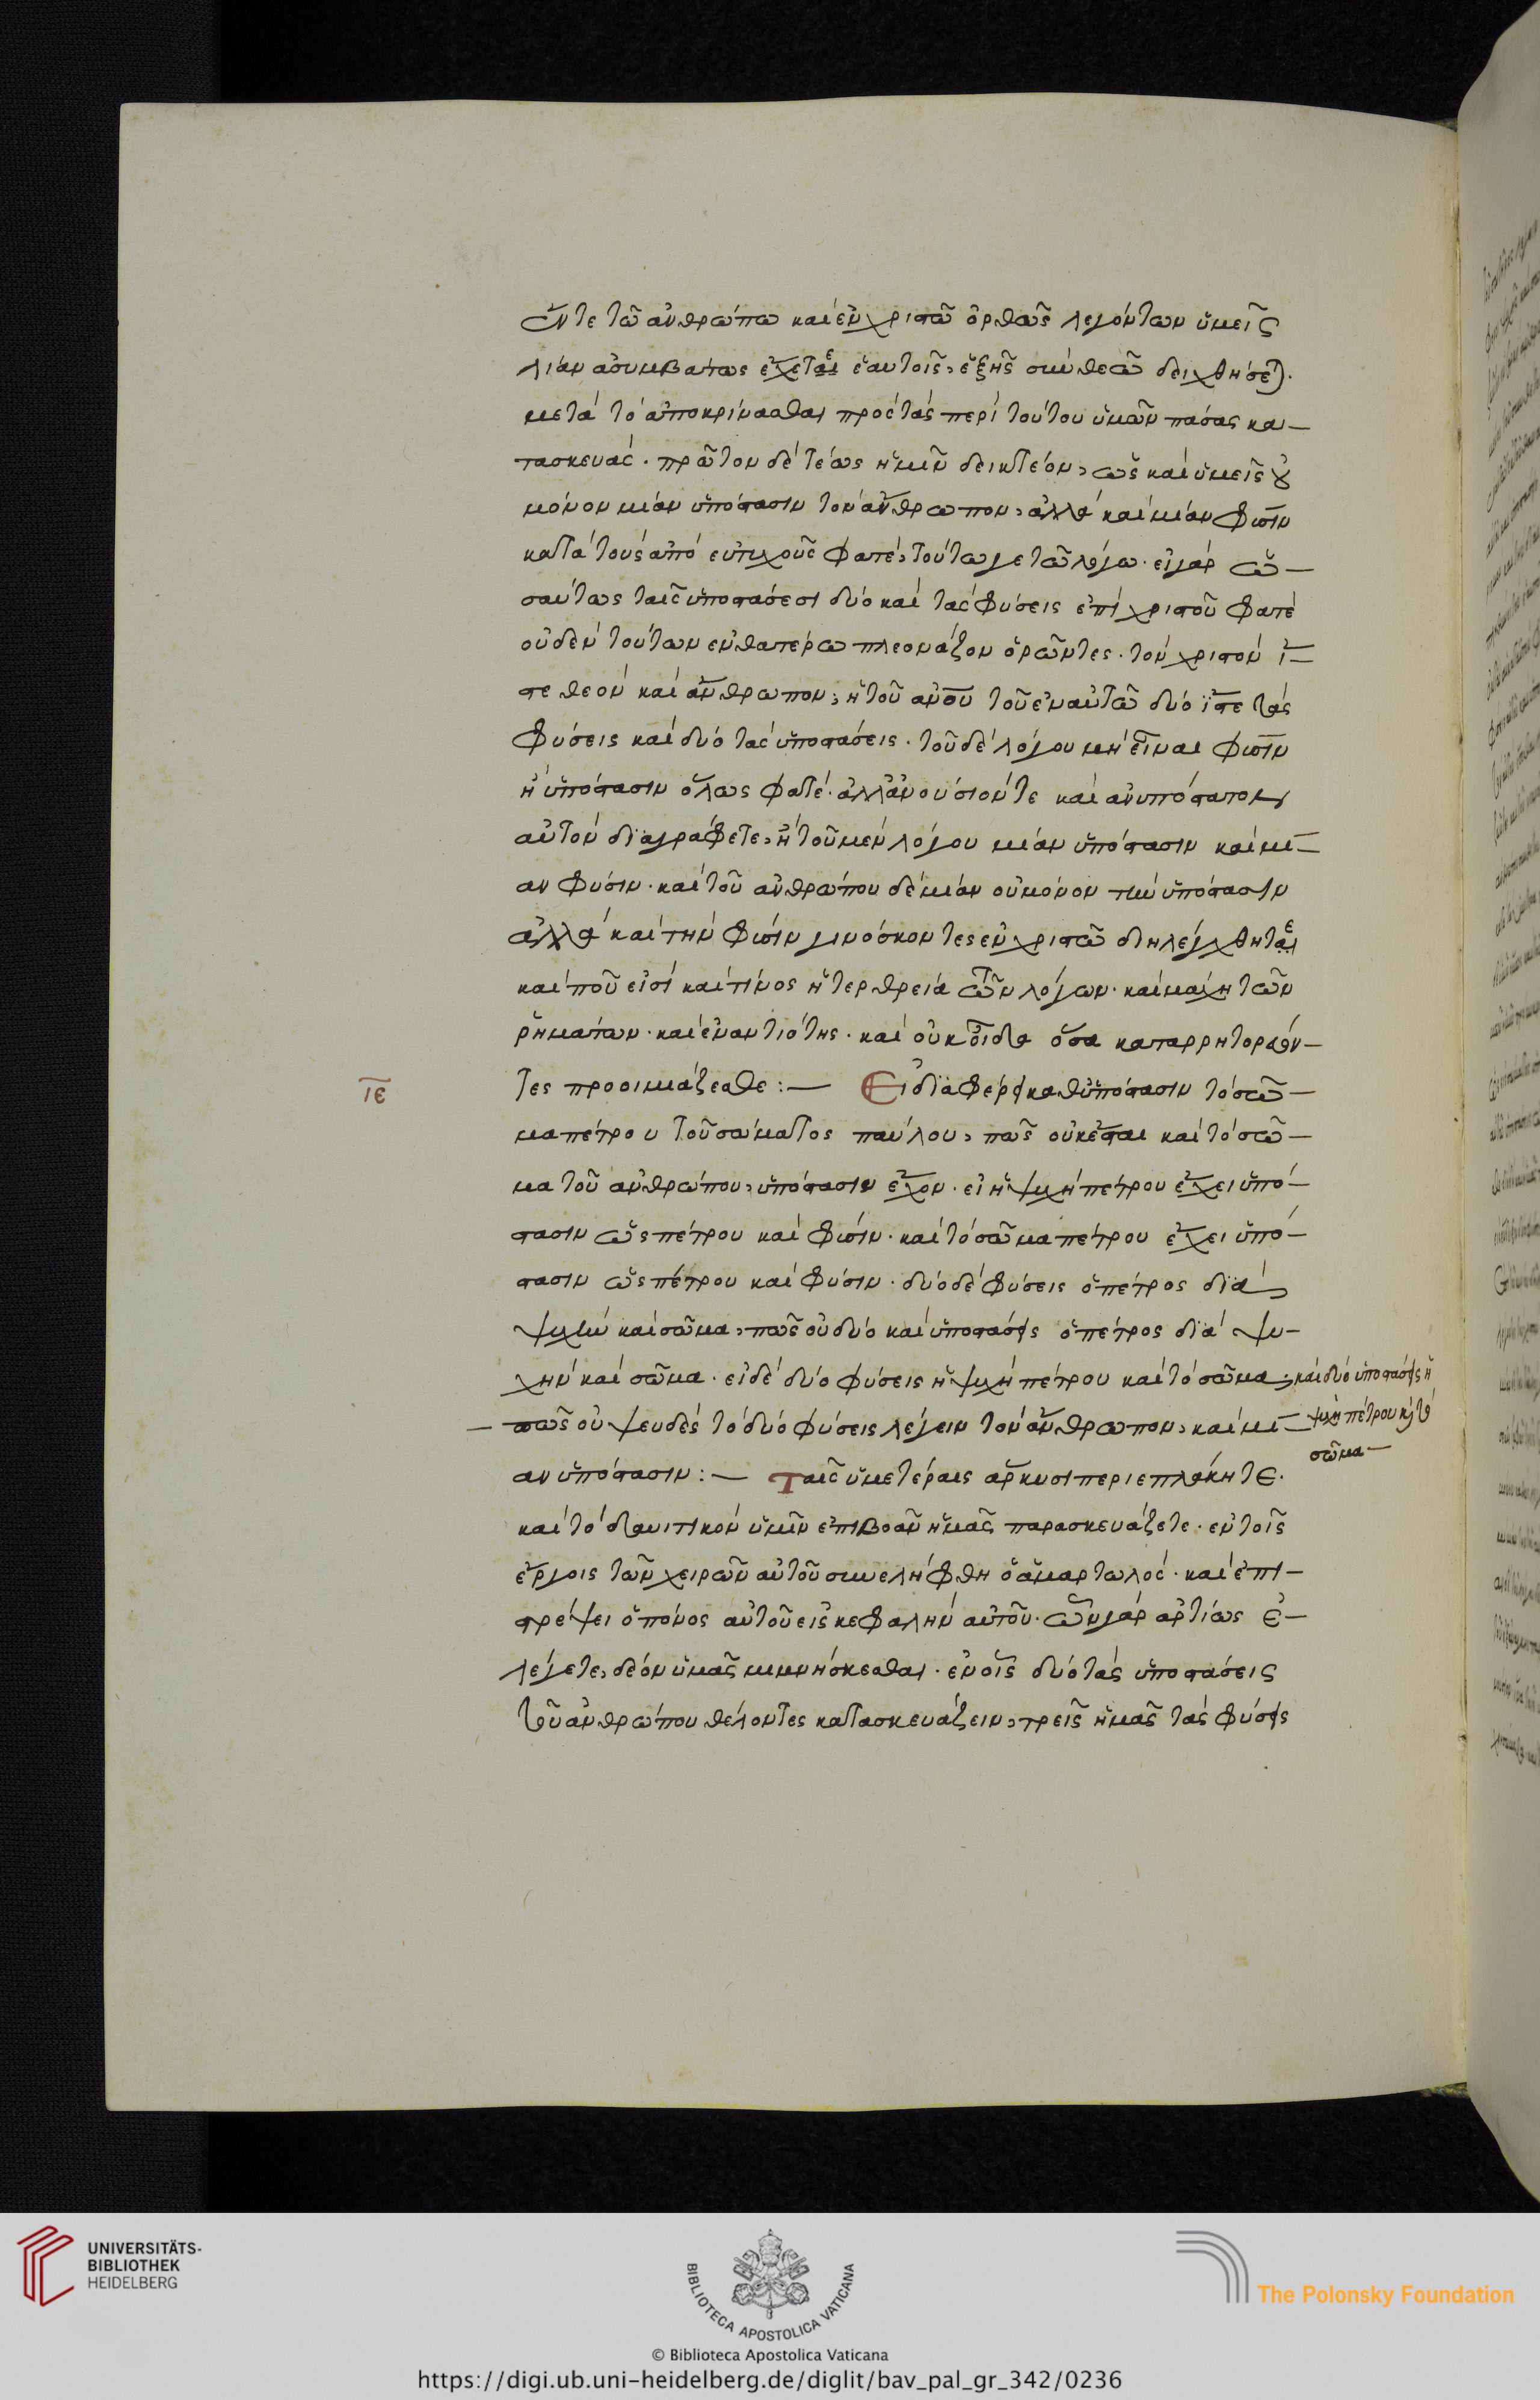 ἔν τε τῶ ἀνθρώπω καὶ ἐν χριστῶ ὀρθῶς λεγόντων ὑμεῖς
λίαν ἀσυμβάτως ἔχεται ἑαυτοῖς, ἑξῆς σὺν θεῶ δειχθήσεται.
μετὰ τὸ ἀποκρίνασθαι πρὸς τὰς περὶ τούτου ὑμῶν πάσας κα-
τασκευάς. πρῶτον δὲ τέως ἡμῖν δεικτέον, ὡς καὶ ὑμεῖς οὐ
μόνον μίαν ὑπόστασιν τὸν ἄνθρωπον, ἀλλὰ καὶ μίαν φύσιν
κατὰ τοὺς ἀπὸ εὐτυχοῦς φατὲ, τούτω γε τῶ λόγω. εἰ γὰρ ὡ-
σαύτως ταῖς ὑποστάσεσι δύο καὶ τὰς φύσεις ἐπὶ χριστοῦ φατὲ
οὐδὲν τούτων ἐν θατέρω πλεονάζον ὁρῶντες. τὸν χριστὸν ἴ-
στε θεὸν καὶ ἄνθρωπον, ἢ τοῦ ἀνου τοῦ ἐν αὐτῶ δύο ἴστε τὰς
φύσεις καὶ δύο τὰς ὑποστάσεις. τοῦ δὲ λόγου μὴ εἶναι φύσιν
ἢ ὑπόστασιν ὅλως φατέ. ἀλλ' ἀνούσιόν τε καὶ ἀνυπόστατον
αὐτὸν διαγράφετε, ἢ τοῦ μὲν λόγου μίαν ὑπόστασιν καὶ μί-
αν φύσιν. καὶ τοῦ ἀνθρώπου δὲ μίαν οὐ μόνον τὴν ὑπόστασιν
ἀλλὰ καὶ τὴν φύσιν γινόσκοντες ἐν χριστῶ διηλέγχθηται
καὶ ποῦ εἰσὶ καὶ τίνος ἡ τερθρεία τῶν λόγων. καὶ μάχη τῶν
ῥημάτων. καὶ ἐναντιότης. καὶ οὐκ οἶδα ὅσα καταρρητορεύον-
ιε
τες προοιμιάζεσθε:— Εἰ διαφέρει καθ' ὑπόστασιν τὸ σῶ-
μα πέτρου τοῦ σώματος παύλου, πῶς οὐκ ἔσται καὶ τὸ σῶ-
μα τοῦ ἀνθρώπου, ὑπόστασιν ἔχον. εἰ ἡ ψυχὴ πέτρου ἔχει ὑπό-
στασιν ὡς πέτρου καὶ φύσιν. καὶ τὸ σῶμα πέτρου ἔχει ὑπό-
στασιν ὡς πέτρου καὶ φύσιν. δύο δὲ φύσεις ὁ πέτρος διὰ
ψυχὴν καὶ σῶμα, πῶς οὐ δύο καὶ ὑποστάσεις ὁ πέτρος διὰ ψυ-
χὴν καὶ σῶμα. εἰ δὲ δύο φύσεις ἡ ψυχὴ πέτρου καὶ τὸ σῶμα, καὶ δύο ὑποστάσεις ἡ
πῶς οὐ ψευδὲς τὸ δύο φύσεις λέγειν τὸν ἄνθρωπον, καὶ μί- ψυχὴ πέτρου καὶ τὸ
σῶμα—
αν ὑπόστασιν:— Ταῖς ὑμετέραις ἄρκυσι περιεπλάκητε.
καὶ τὸ δαυιτικὸν ὑμῖν ἐπιβοᾶν ἡμᾶς παρασκευάζετε. ἐν τοῖς
ἔργοις τῶν χειρῶν αὐτοῦ συνελήφθη ὁ ἁμαρτωλός. καὶ ἐπι-
στρέψει ὁ πόνος αὐτοῦ εἰς κεφαλὴν αὐτοῦ. ὧν γὰρ ἀρτίως ἐ-
λέγετε, δέον ὑμᾶς μιμνήσκεσθαι. ἐν οἷς δύο τὰς ὑποστάσεις
τοῦ ἀνθρώπου θέλοντες κατασκευάζειν, τρεῖς ἡμᾶς τὰς φύσεις
UNIVERSITÄTS-
BIBLIOTHEK
HEIDELBERG
BIBLIOTECA APOSTOLICA VATICANA
The Polonsky Foundation
© Biblioteca Apostolica Vaticana
https://digi.ub.uni-heidelberg.de/diglit/bav_pal_gr_342/0236